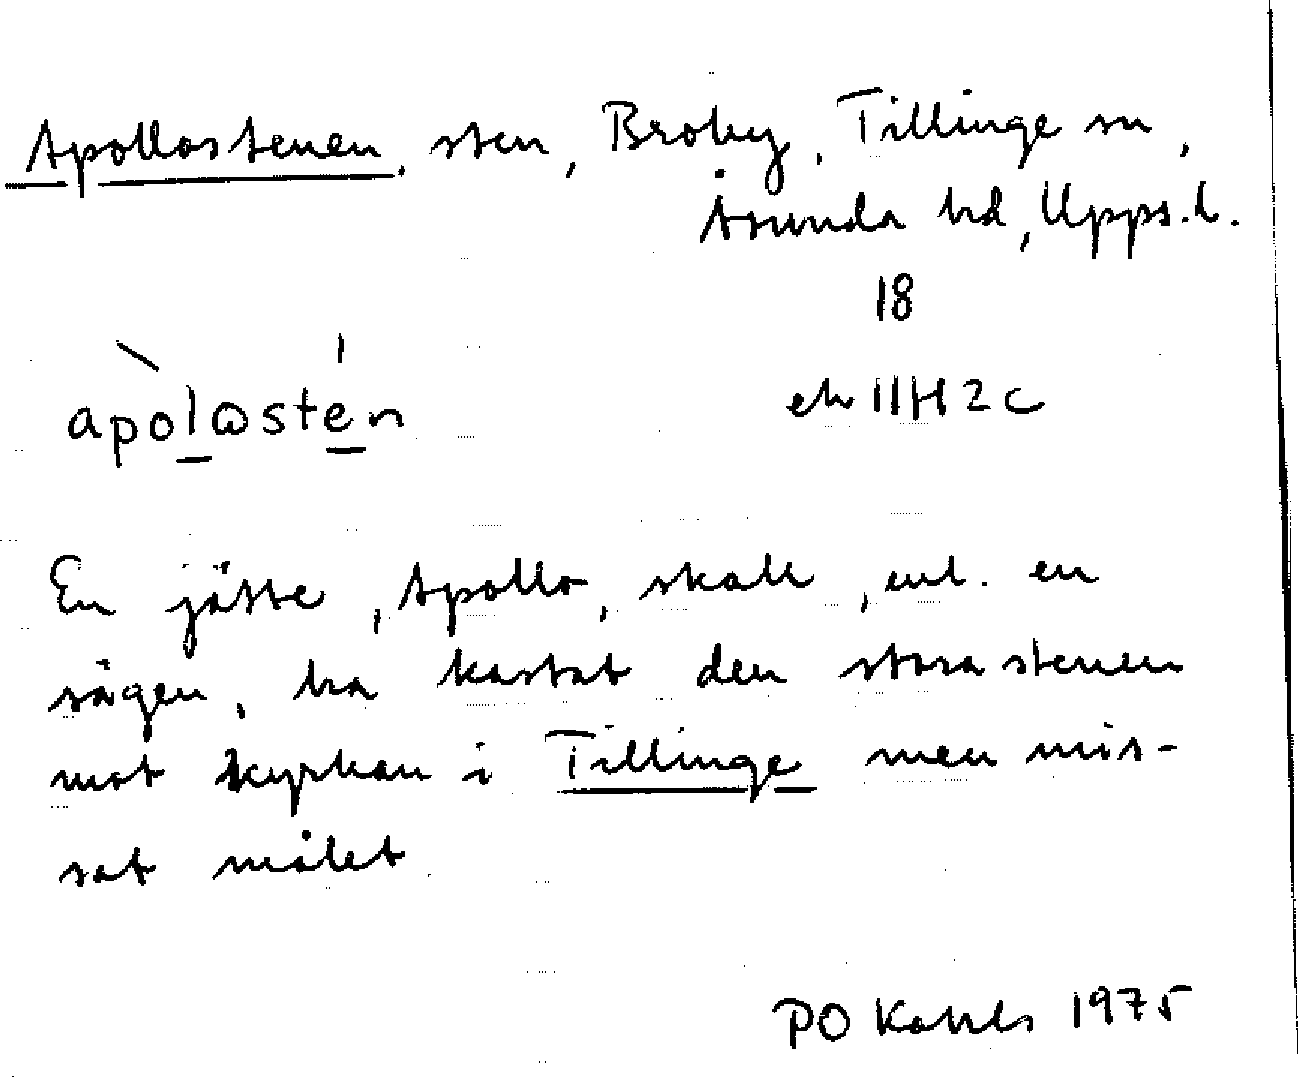 Apollostenen, sten, Broby, Tillinge sn,
Åsunda hd, Upps. l.
18
apolåsten
ek 11H 2c
En jätte, Apollo, skall, enl. en
sägen, ha kastat den stora stenen
mot kyrkan i Tillinge men mis-
sat målet
PO 1975